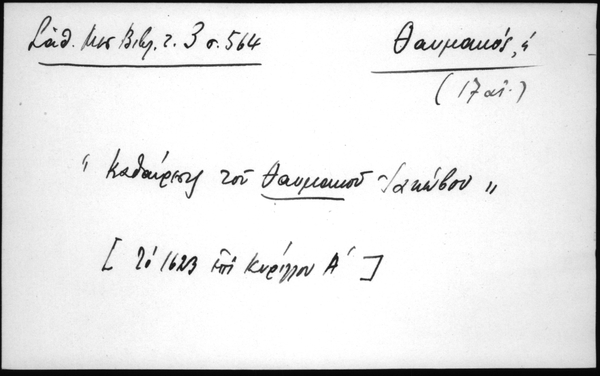 Σάθ. Μεσ. Βιβλ. τ. 3 σ. 564
Θαυμακός, ὁ
(17 αἰ.)
"Καθαίρεσις τοῦ Θαυμακοῦ Ἰακώβου"
[τὸ 1623 ἐπὶ Κυρίλλου Α΄]